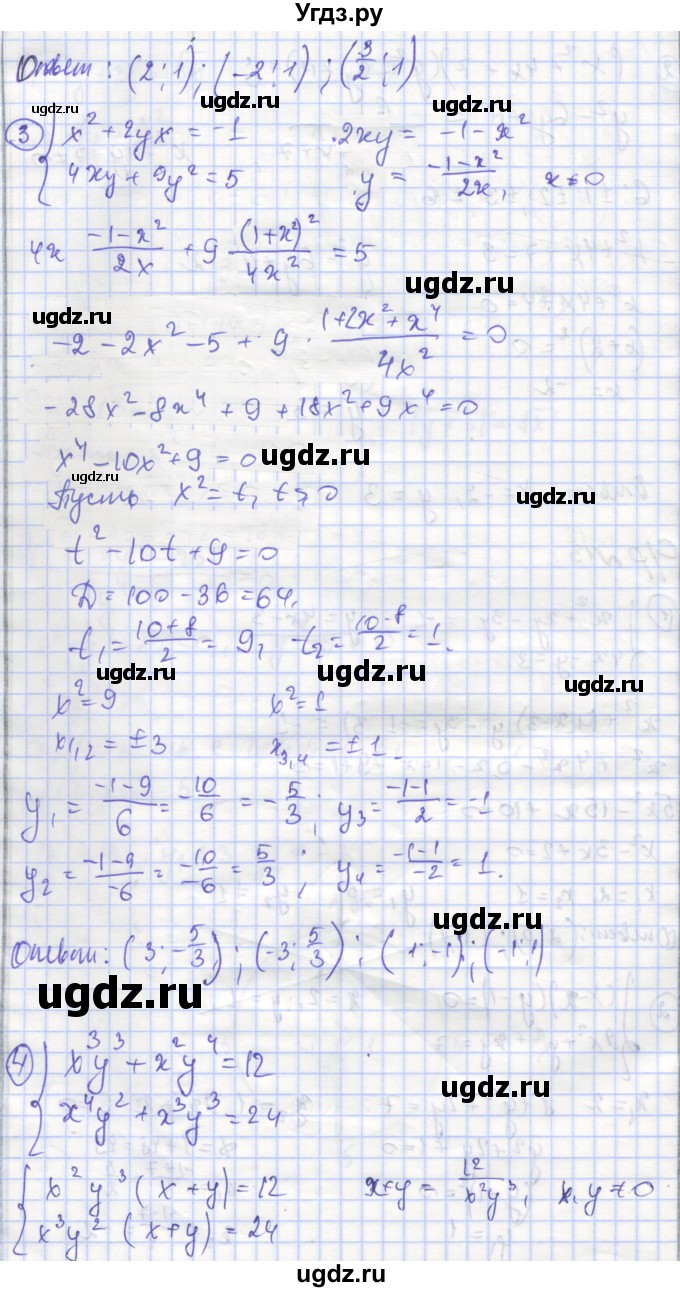 Угдз.ру
Ответ: (2;1); (-2;1); (3/2;1)
ugdz.ru ugdz.ru ugdz.ru
③ { x² + 2yx = -1    2xy = -1 - x²
{ 4xy + 9y² = 5    y = (-1-x²)/2x, x≠0
ugdz.ru
4x (-1-x²)/2x + 9 (1+x²)²/4x² = 5
ugdz.ru
ugdz.ru
-2 - 2x² - 5 + 9 · (1+2x²+x⁴)/4x² = 0
-28x² - 8x⁴ + 9 + 18x² + 9x⁴ = 0
x⁴ - 10x² + 9 = 0 ugdz.ru
ugdz.ru
Пусть x² = t, t ≥ 0 ugdz.ru
t² - 10t + 9 = 0
D = 100 - 36 = 64.
t₁ = (10+8)/2 = 9, t₂ = (10-8)/2 = 1.
ugdz.ru ugdz.ru ugdz.ru
x² = 9    x² = 1
x₁,₂ = ±3    x₃,₄ = ±1.
y₁ = (-1-9)/6 = -10/6 = -5/3; y₃ = (-1-1)/2 = -1
y₂ = (-1-9)/-6 = -10/-6 = 5/3; y₄ = (-1-1)/-2 = 1.
ugdz.ru
Ответ: (3; -5/3); (-3; 5/3); (1; -1); (-1; 1)
ugdz.ru
④ { x³y³ + x²y⁴ = 12
ugdz.ru
{ x⁴y² + x³y³ = 24
{ x²y³ (x+y) = 12    x+y = 12/x²y³, x,y ≠ 0
{ x³y² (x+y) = 24
ugdz.ru